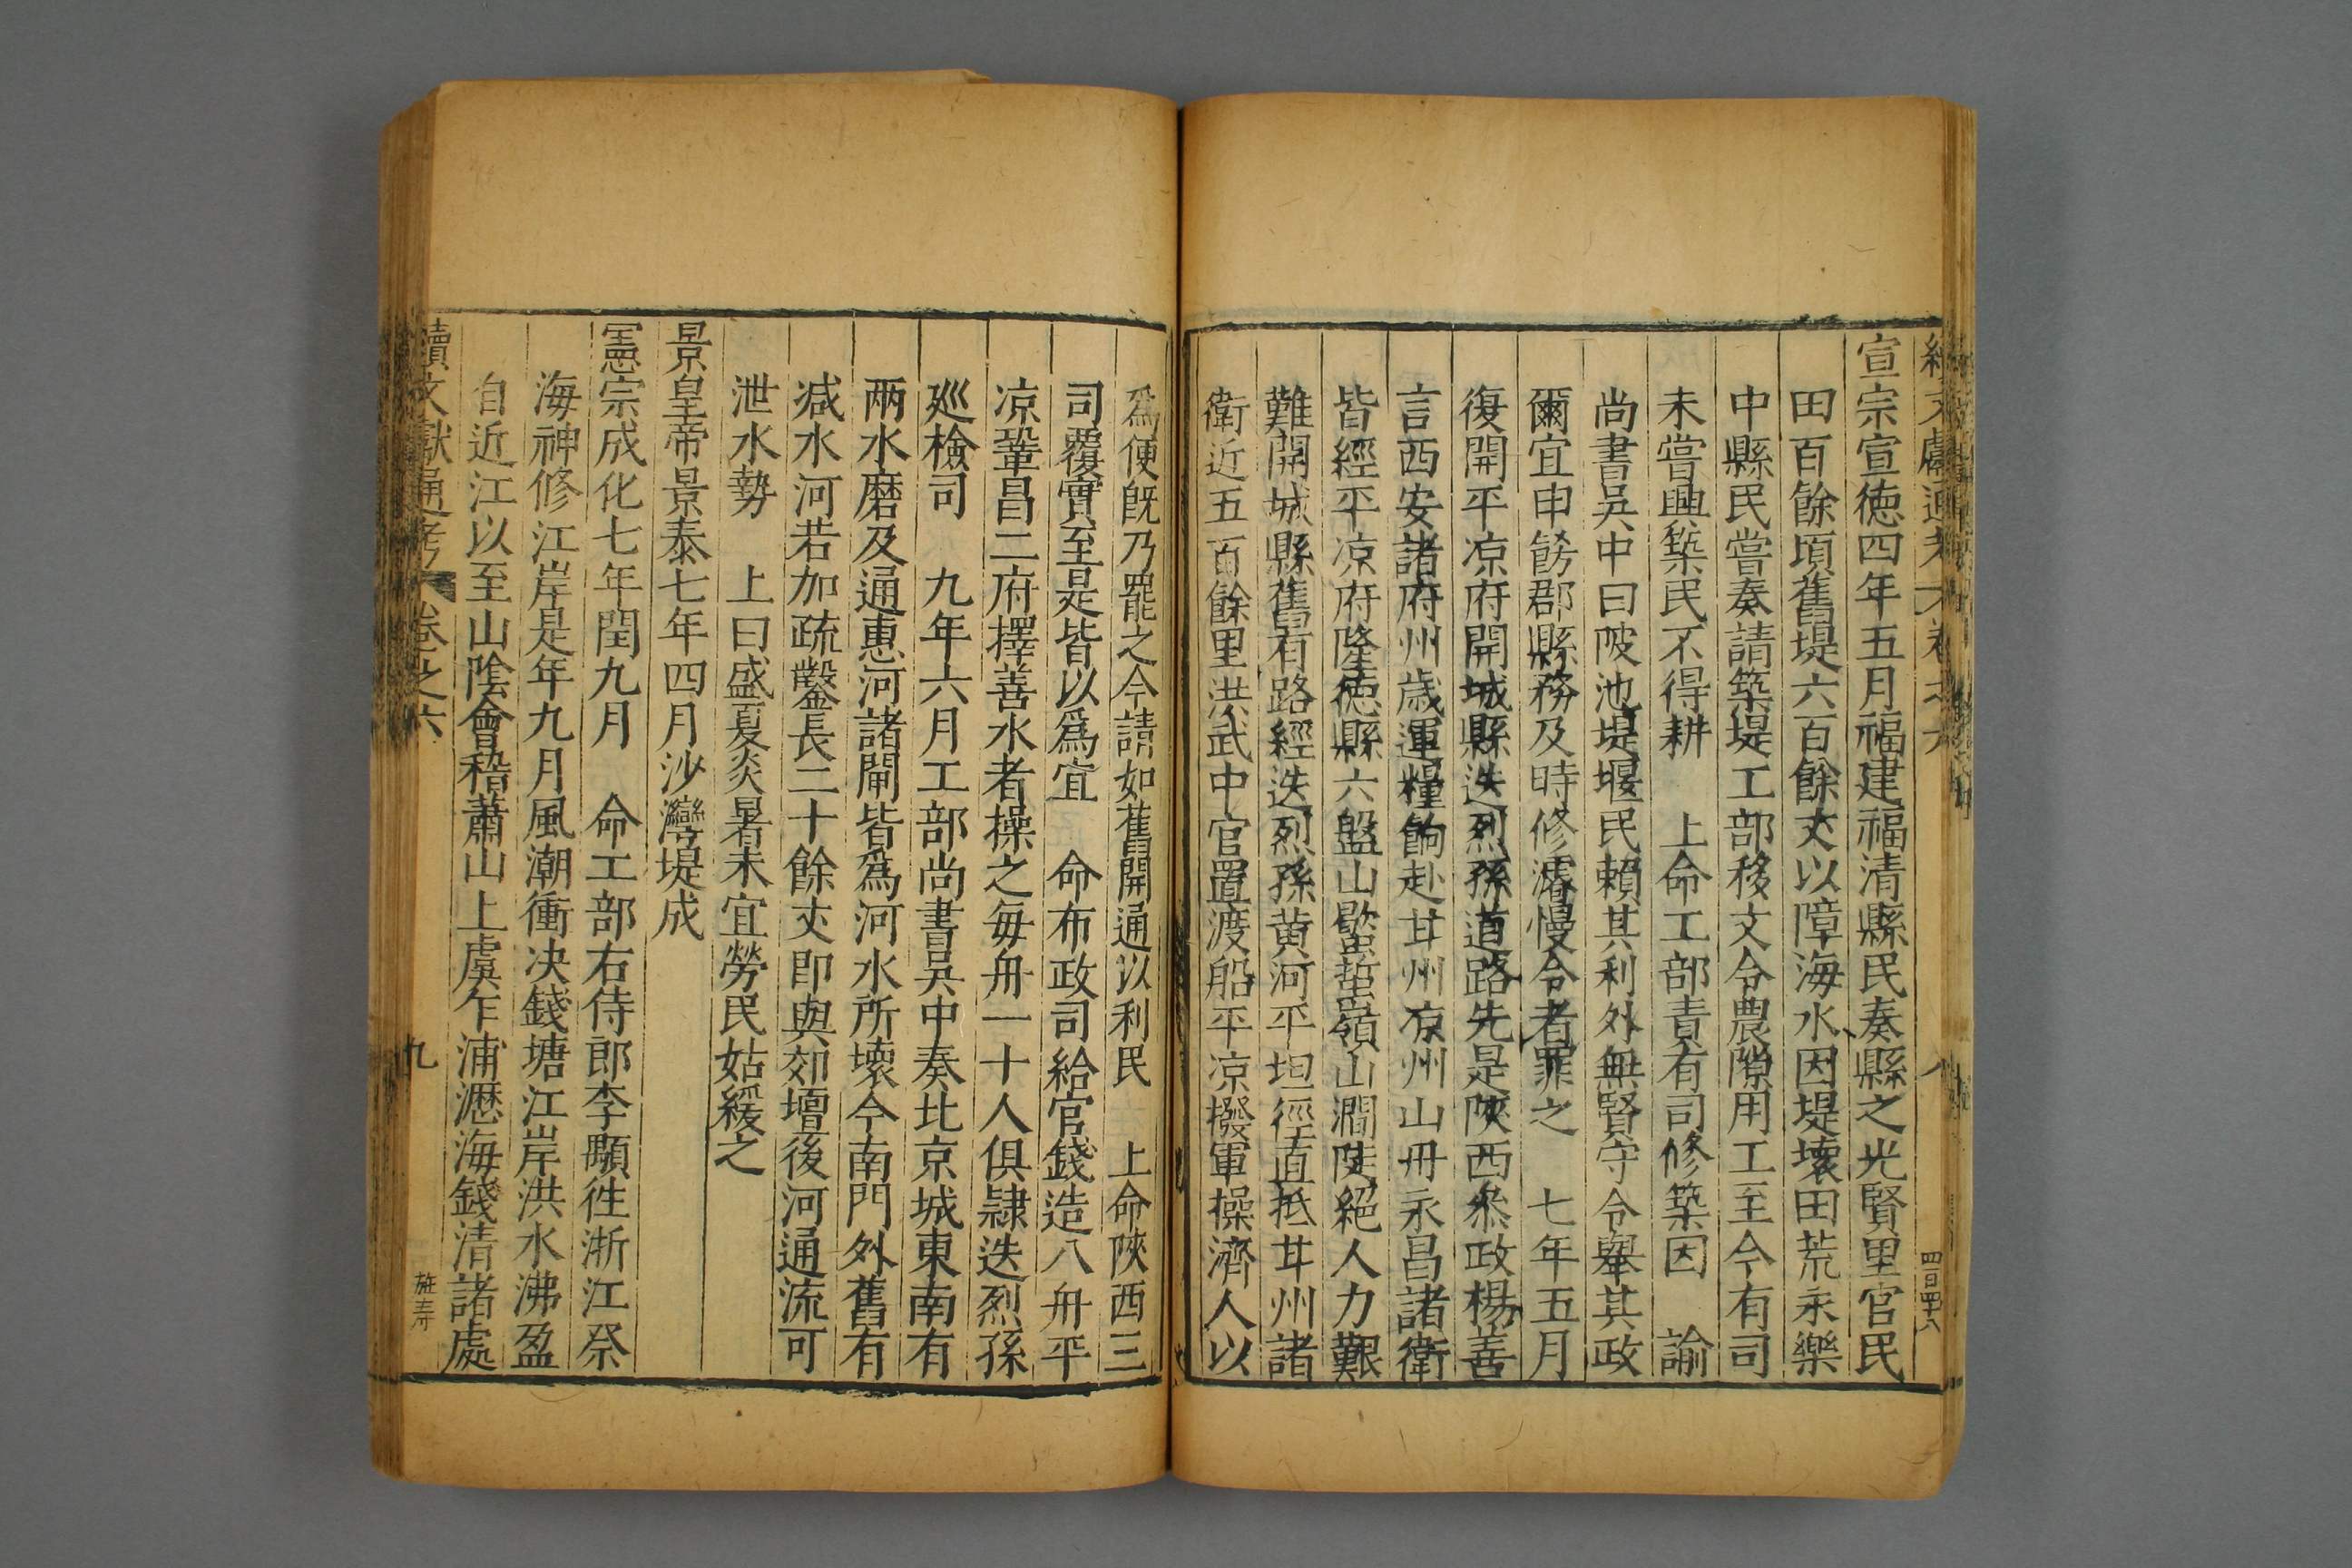 續文獻通考 卷之六 八
四百四十八
宣宗宣德四年五月福建福清縣民奏縣之光賢里官民
田百餘頃舊堤六百餘丈以障海水因堤壞田荒永樂
中縣民嘗奏請築堤工部移文令農隙用工至今有司
未嘗興築民不得耕 上命工部責有司修築因 諭
尚書吳中曰陂池堤堰民賴其利外無賢守令舉其政
爾宜申飭郡縣務及時修濬慢令者罪之 七年五月
復開平凉府開城縣迭烈孫道路先是陝西叅政楊善
言西安諸府州歲運糧餉赴甘州凉州山丹永昌諸衛
皆經平凉府隆德縣六盤山歇蜇嶺山澗陡絕人力艱
難開城縣舊有路經迭烈孫黃河平坦徑直抵甘州諸
衛近五百餘里洪武中官置渡船平凉撥軍操濟人以
爲便旣乃罷之今請如舊開通以利民 上命陝西三
司覆實至是皆以爲宜 命布政司給官錢造八舟平
凉鞏昌二府擇善水者操之每舟一十人俱隷迭烈孫
廵檢司 九年六月工部尚書吳中奏北京城東南有
兩水磨及通惠河諸閘皆爲河水所壞今南門外舊有
减水河若加疏鑿長二十餘丈即與郊壇後河通流可
泄水勢 上曰盛夏炎暑未宜勞民姑緩之
景皇帝景泰七年四月沙灣堤成
憲宗成化七年閏九月 命工部右侍郎李顒徃浙江祭
海神修江岸是年九月風潮衝决錢塘江岸洪水沸盈
自近江以至山陰會稽蕭山上虞乍浦瀝海錢清諸處
續文獻通考 卷之六 九